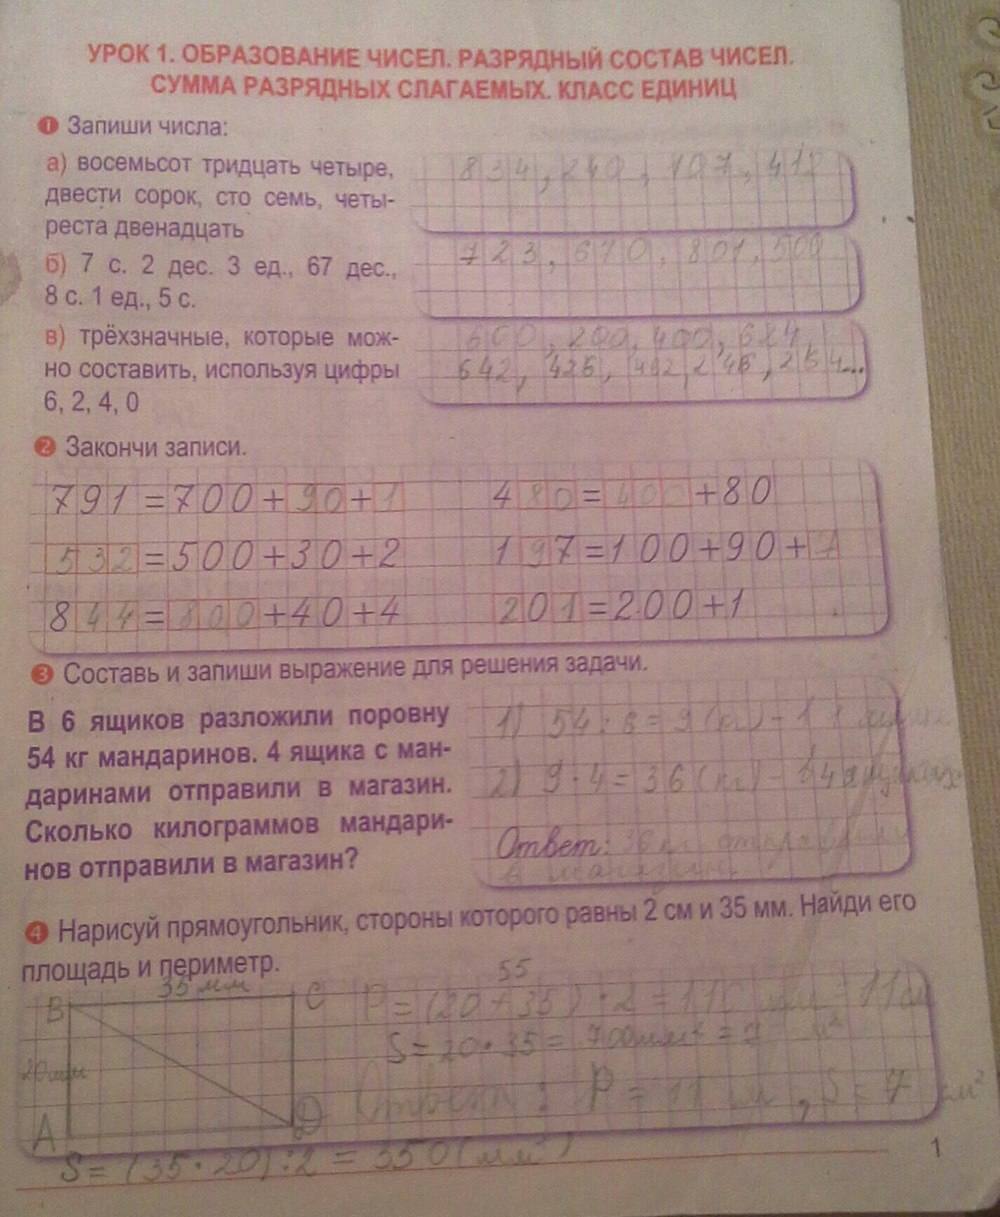 УРОК 1. ОБРАЗОВАНИЕ ЧИСЕЛ. РАЗРЯДНЫЙ СОСТАВ ЧИСЕЛ.
СУММА РАЗРЯДНЫХ СЛАГАЕМЫХ. КЛАСС ЕДИНИЦ
1 Запиши числа:
а) восемьсот тридцать четыре,
двести сорок, сто семь, четы-
реста двенадцать
834, 240, 107, 412
б) 7 с. 2 дес. 3 ед., 67 дес.,
8 с. 1 ед., 5 с.
723, 670, 801, 500
в) трёхзначные, которые мож-
но составить, используя цифры
6, 2, 4, 0
600, 200, 400, 624,
642, 426, 462, 246, 264...
2 Закончи записи.
791 = 700 + 90 + 1
480 = 400 + 80
532 = 500 + 30 + 2
197 = 100 + 90 + 7
844 = 800 + 40 + 4
201 = 200 + 1
3 Составь и запиши выражение для решения задачи.
В 6 ящиков разложили поровну
54 кг мандаринов. 4 ящика с ман-
даринами отправили в магазин.
Сколько килограммов мандари-
нов отправили в магазин?
1) 54 : 6 = 9 (кг) - 1
2) 9 · 4 = 36 (кг) - 4 ящиках
Ответ: 36 кг отправили
в магазин
4 Нарисуй прямоугольник, стороны которого равны 2 см и 35 мм. Найди его
площадь и периметр.
35 мм
B
C
20мм
A
D
55
P = (20 + 35) · 2 = 110 мм = 11 см
S = 20 · 35 = 700мм² = 7 м²
Ответ: P = 11 см, S = 7 см²
S = (35 · 20) : 2 = 350 (мм²)
1